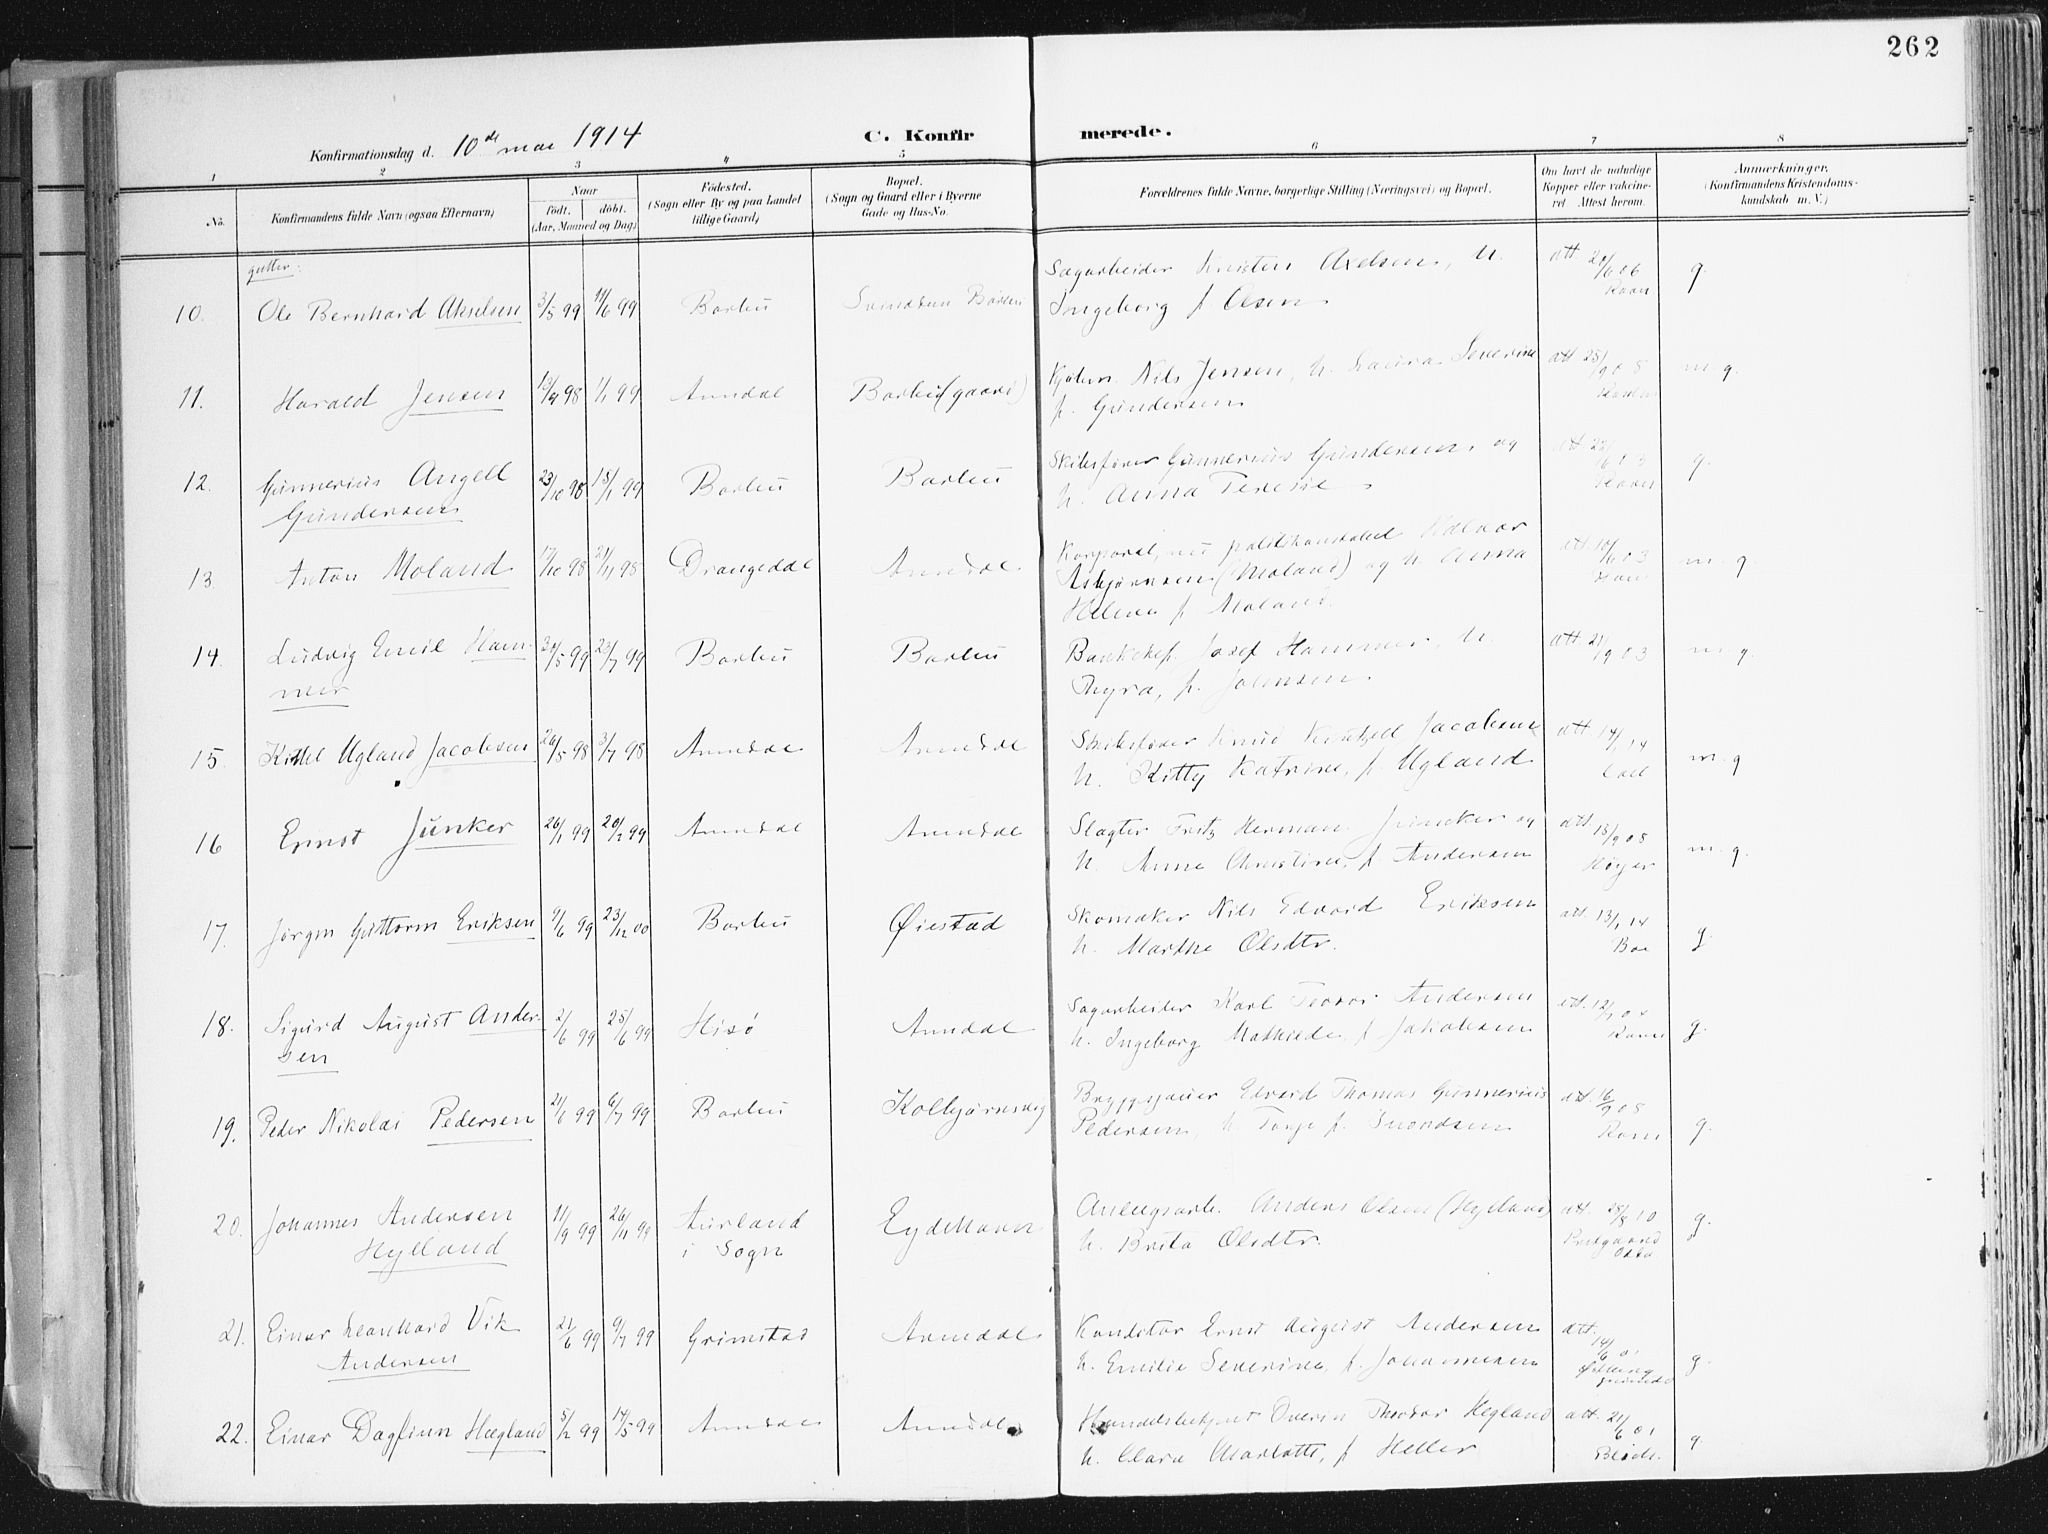 262
Konfirmationsdag d. 10de mai 1914
C. Konfirmerede.
1 2 3 4 5 6 7 8
No.
Konfirmandens fulde Navn (ogsaa Efternavn)
Naar
født. døbt.
(Aar, Maaned og Dag)
Fødested.
(Sogn eller By og paa Landet
tillige Gaard)
Bopæl.
(Sogn og Gaard eller i Byerne
Gade og Hus-No.
Forældrenes fulde Navne, borgerlige Stilling (Næringsvei) og Bopæl.
Om havt de naturlige
Kopper eller vakcine-
ret Attest herom.
Anmerkninger.
(Konfirmandens Kristendoms-
kundskab m. V.)
gutter:
10. Ole Bernhard Akselsen 3/5 99 11/6 99 Barbu Barbu
Sagarbeider Kristen Axelsen, h.
Ingeborg f. Olsen
att. 20/6 06 g.
11. Harald Jensen 98 1/1 99 Arendal Barbu (gaard)
Nils Jensen, h. Laura Severine
f. Gundersen
att m.g.
12. Gunnerius Angell
Gundersen 23/10 98 15/1 99 Barbu Barbu
Skibsfører Gunnerius Gundersen og
h. Anna Terese
att g.
13. Anton Moland 17/10 98 21/11 98 Drangedal Arendal
Korporal, nu politikonstabel Halvor
Asbjørnsen (Moland) og h. Anna
Helene f. Moland.
att. 10/6 03 m.g.
14. Ludvig Emil Ham-
mer 99 23/7 99 Barbu Barbu
Josef Hammer, h.
Thyra, f. Johnsen.
att. 21/9 03 m.g.
15. Kittel Ugland Jacobsen 26/5 98 3/7 98 Arendal Arendal
Skibsfører Knud Jacobsen
h. Kitty Katrine, f. Ugland
att 14/1 14 m.g
16 Ernst Junker 26/1 99 20/2 99 Arendal Arendal
Slagter Fritz Herman Juncker og
h. Anne Christine, f. Andersen
att. 18/9 08
Høyer m.g.
17. Jørgen Guttorm Eriksen 9/6 99 23/12 00 Barbu Øiestad
Skomaker Nils Edvard Eriksen
h. Marthe Olsdtr.
att. 13/1 14
Boe g.
18. Sigurd August Ander-
sen 2/6 99 25/6 99 Hisø Arendal
Sagarbeider Karl Andersen
h. Ingeborg Mathilde, f. Jakobsen
att. g.
19. Peder Nikolai Pedersen 21/6 99 6/7 99 Barbu Kolbjørnsvig
Edvard Thomas Gunnerius
Pedersen, h.
att. 16/9 08 g.
20. Johannes Andersen
Hylland 11/9 99 26/11 99 Aurland
i Sogn Eydehavn
Anlægsarb. Anders Olsen (Hylland)
h. Brita Olsdtr.
att. 28/8 10 g.
21. Einar Leonhard Vik
Andersen 21/6 99 9/7 99 Grimstad Arendal
Konditor Ernst August Andersen
h. Emilie Severine, f. Johannesen
att. 14/6 01 g.
22. Einar Dagfinn Hegland 5/2 99 14/5 99 Arendal Arendal
Handelsbetjent Theodor Hegland
h. Clara Charlotte, f. Heller
att. 21/6 01 g.